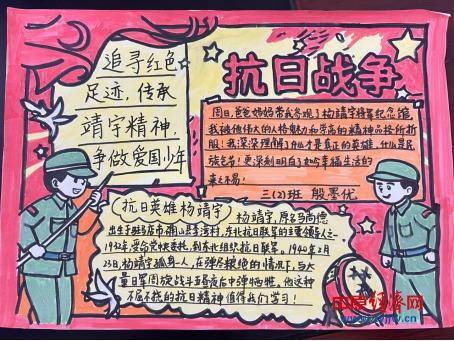 追寻红色
足迹,传承
靖宇精神,
争做爱国少年
抗日战争
周日,爸爸妈妈带我参观了杨靖宇将军纪念馆
我被他伟大的人格魅力和崇高的精神品格所折
服!我深深理解了什么才是真的英雄,什么是民
族气节!更深刻明白了如今幸福生活的
来之不易!
三(2)班 殷墨优
抗日英雄杨靖宇
杨靖宇,原名马尚德
出生于驻马店市确山县李湾村,东北抗日联军的主要领导人之一
1932年,受命党中央委托,到东北组织抗日联军。1940年2月
23日,杨靖宇孤身一人,在弹尽粮绝的情况下,与大
量日军周旋战斗五昼夜后中弹牺牲,他这种
不屈不挠的抗日精神值得我们学习!
中原经济网